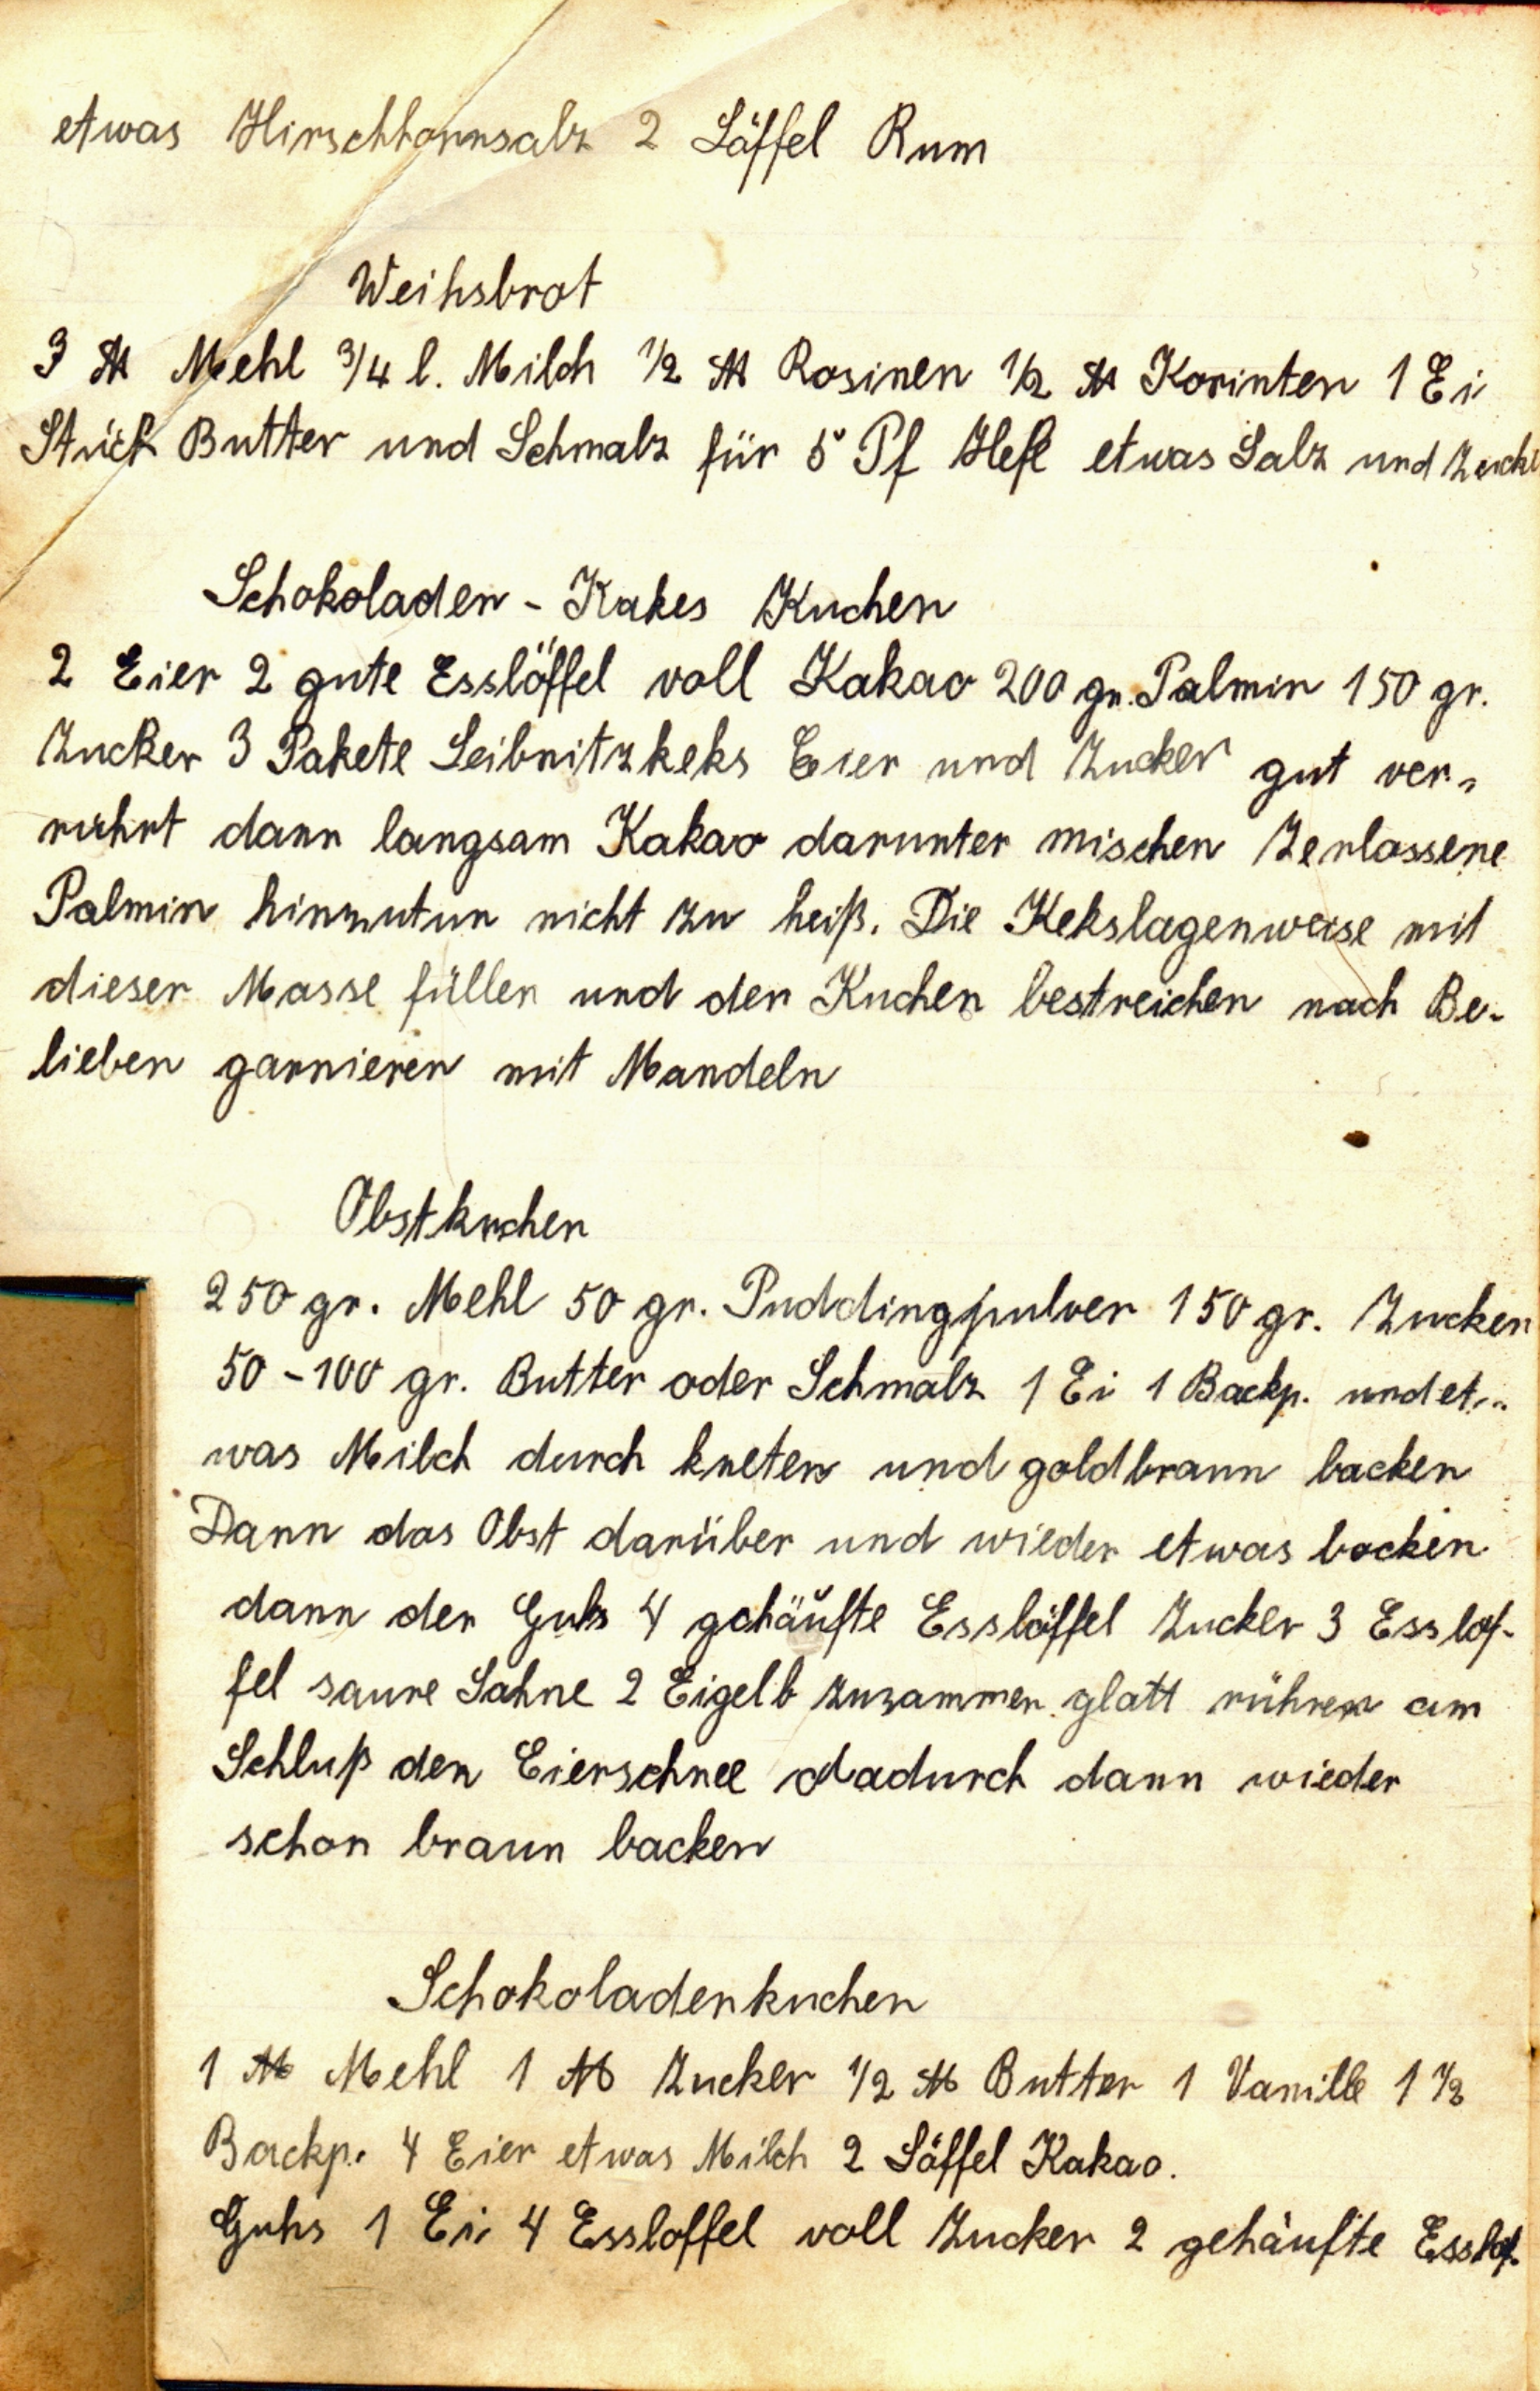 etwas Hirschhornsalz 2 Löffel Rum
Weihsbrot
3 ℔ Mehl 3/4 l. Milch 1/2 ℔ Rosinen 1/2 ℔ Korinten 1 Ei
Stück Butter und Schmalz für 5 Pf Hefe etwas Salz und Zucke
Schokoladen - Kakes Kuchen
2 Eier 2 gute Esslöffel voll Kakao 200 gr. Palmin 150 gr.
Zucker 3 Pakete Leibnitzkeks Eier und Zucker gut ver-
rührt dann langsam Kakao darunter mischen Zerlassene
Palmin hinzutun nicht zu heiß. Die Kekslagenweise mit
dieser Masse füllen und den Kuchen bestreichen nach Be-
lieben garnieren mit Mandeln
Obstkuchen
250 gr. Mehl 50 gr. Puddingpulver 150 gr. Zucker
50 - 100 gr. Butter oder Schmalz 1 Ei 1 Backp. und et-
was Milch durch kneten und goldbraun backen
Dann das Obst darüber und wieder etwas backen
dann der Guhs 4 gehäufte Esslöffel Zucker 3 Esslöf-
fel saure Sahne 2 Eigelb zusammen glatt rühren am
Schluß den Eierschnee dadurch dann wieder
schon braun backen
Schokoladenkuchen
1 ℔ Mehl 1 ℔ Zucker 1/2 ℔ Butter 1 Vanille 1 1/2
Backp. 4 Eier etwas Milch 2 Löffel Kakao.
Guhs 1 Ei 4 Essloffel voll Zucker 2 gehäufte Esslöf-